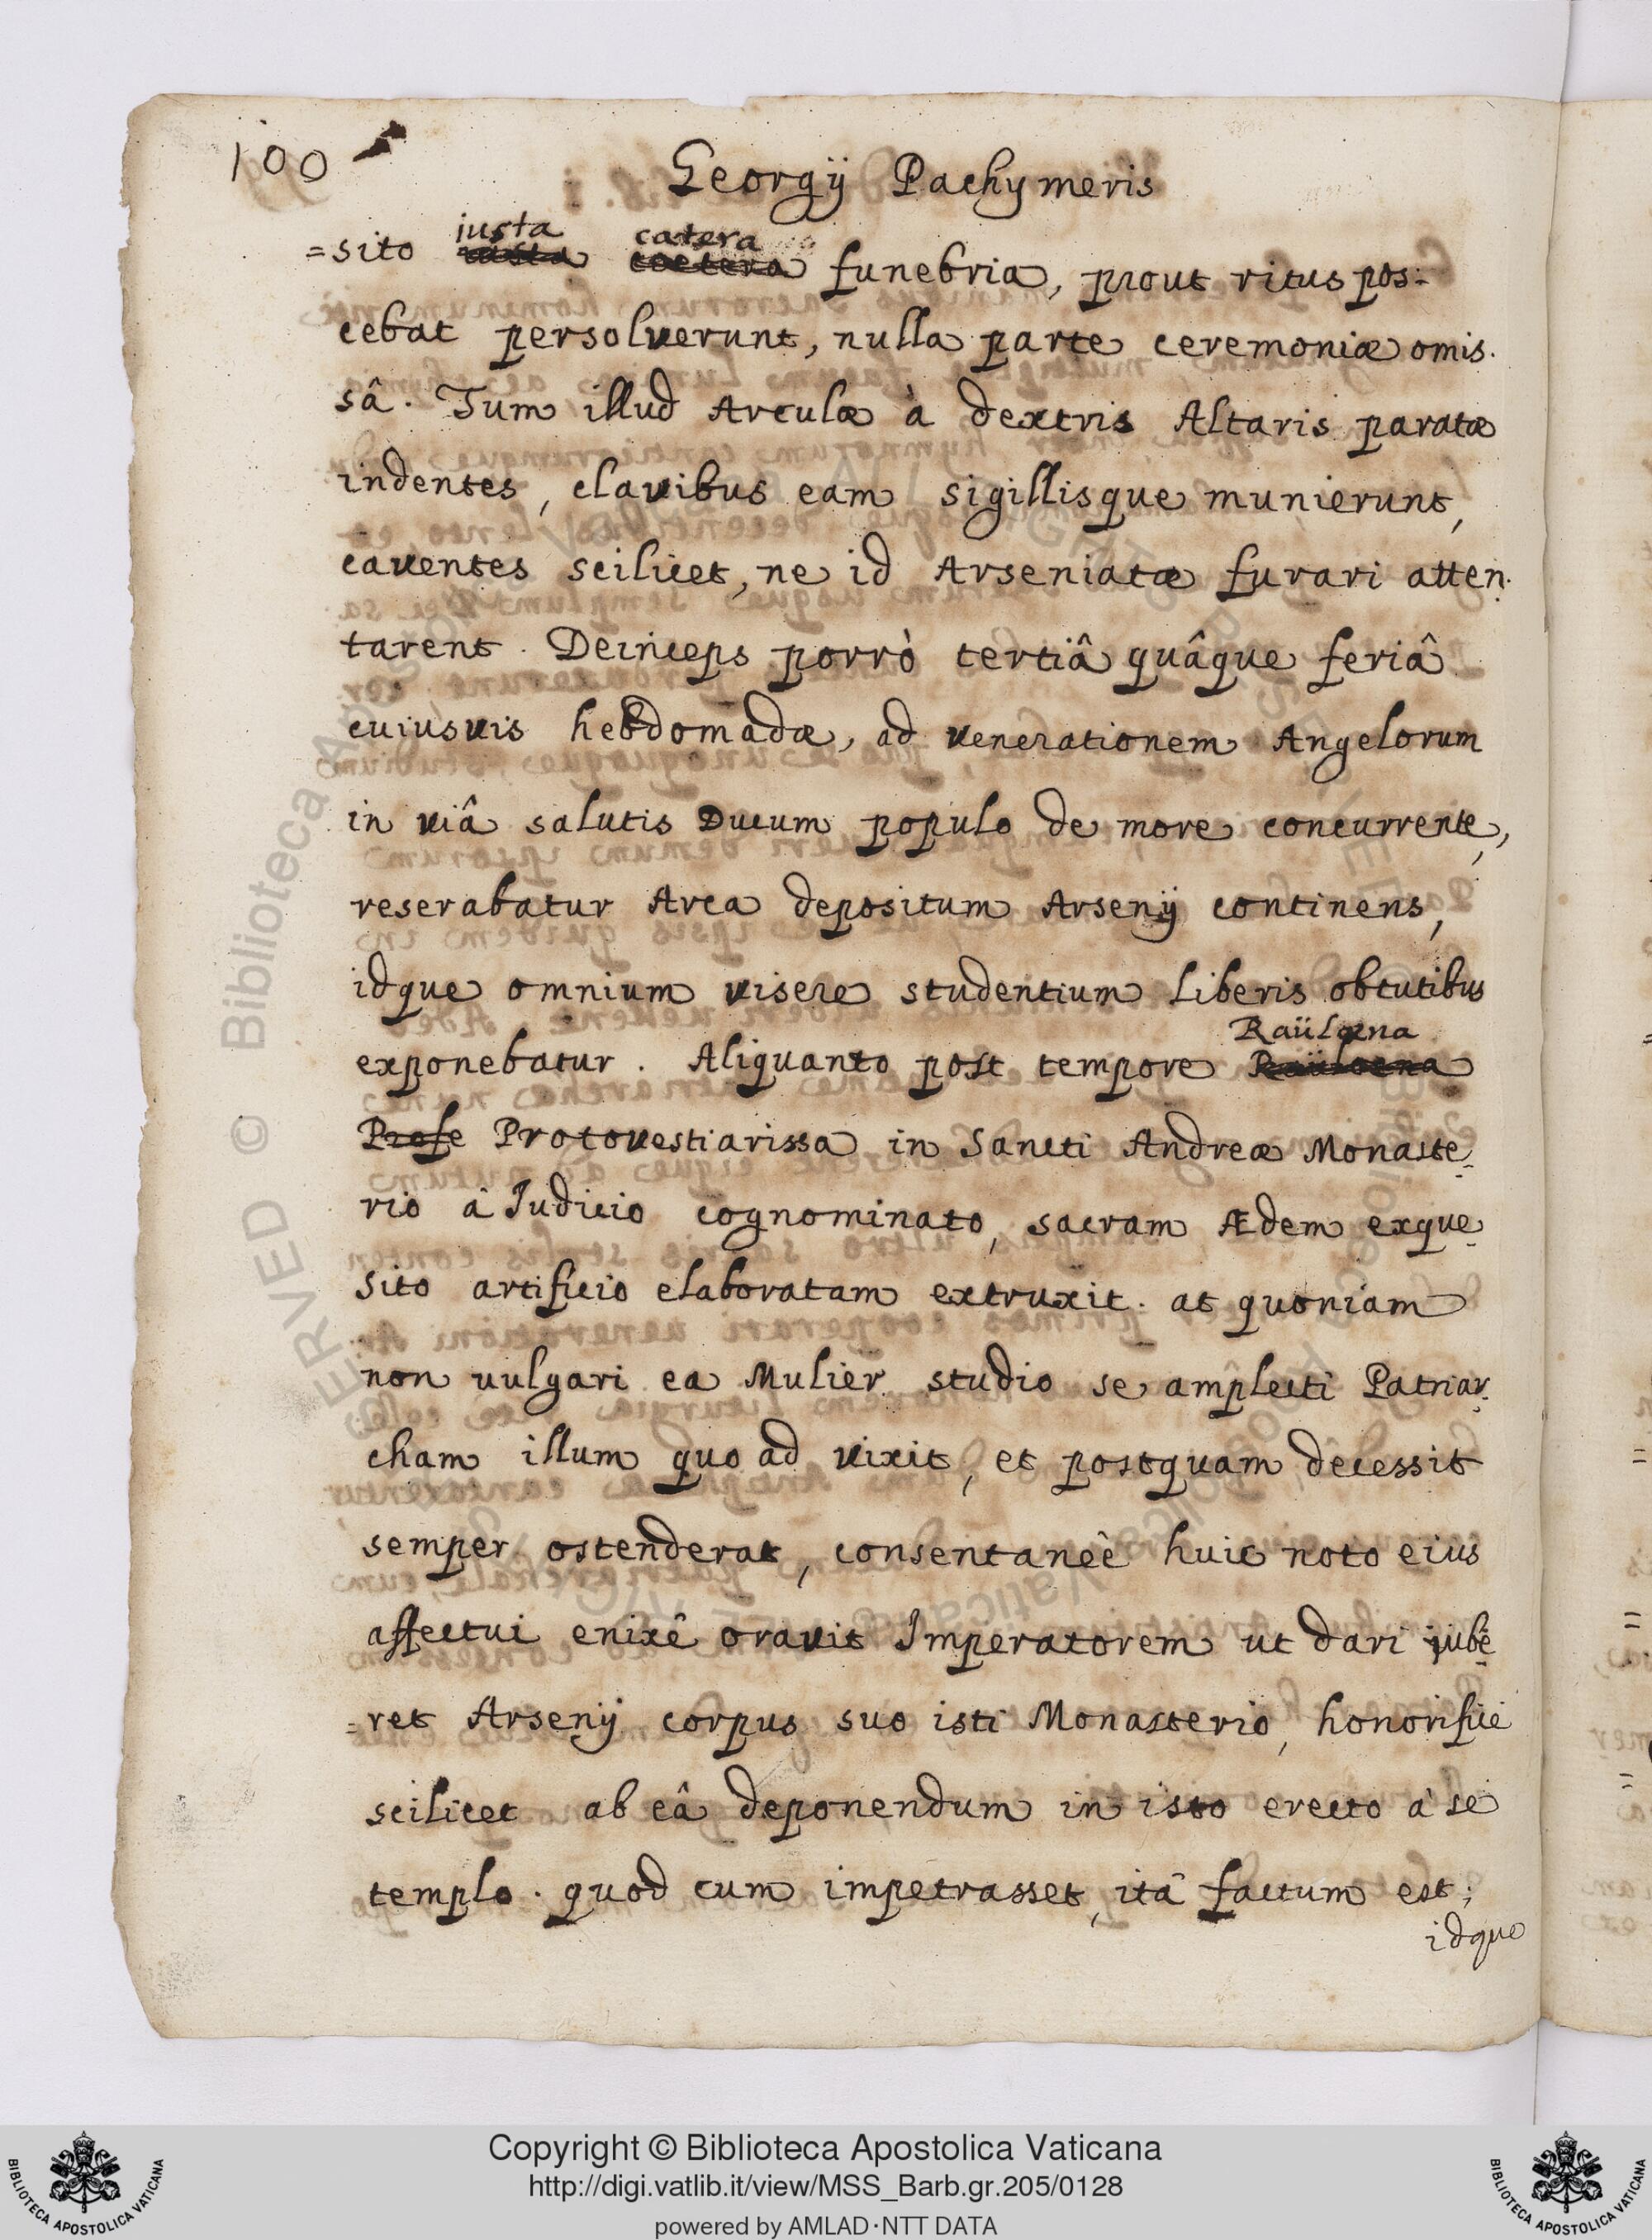 100
Georgij Pachymeris
iusta cætera
=sito iusta coetera funebria, prout ritus pos=
cebat persolverunt, nulla parte ceremoniæ omis.
sâ. Tum illud Arculæ à dextris Altaris paratæ
indentes, clavibus eam sigillisque munierunt,
caventes scilicet, ne id Arseniatæ furari atten-
tarent. Deinceps porrò tertiâ quâque feriâ
cuiusvis hebdomadæ, ad venerationem Angelorum
in viâ salutis Ducum populo de more concurrente,
reserabatur Arca depositum Arsenij continens,
idque omnium visere studentium liberis obtutibus
Raülæna
exponebatur. Aliquanto post tempore Raüloena
Profe Protovestiarissa in Sancti Andreæ Monaste-
rio à Iudicio cognominato, sacram Ædem exque-
sito artificio elaboratam extruxit. at quoniam
non uulgari ea Mulier studio se amplecti Patriar-
cham illum quo ad vixit, et postquam decessit
semper ostenderat, consentaneê huic noto eius
affectui enixê oravit Imperatorem ut dari jube-
=ret Arsenij corpus suo isti Monasterio, honorifice
scilicet ab eâ deponendum in isto erecto à se
templo. quod cum impetrasset, itâ factum est;
idque
Copyright © Biblioteca Apostolica Vaticana
http://digi.vatlib.it/view/MSS_Barb.gr.205/0128
powered by AMLAD·NTT DATA
BIBLIOTECA APOSTOLICA VATICANA
BIBLIOTECA APOSTOLICA VATICANA